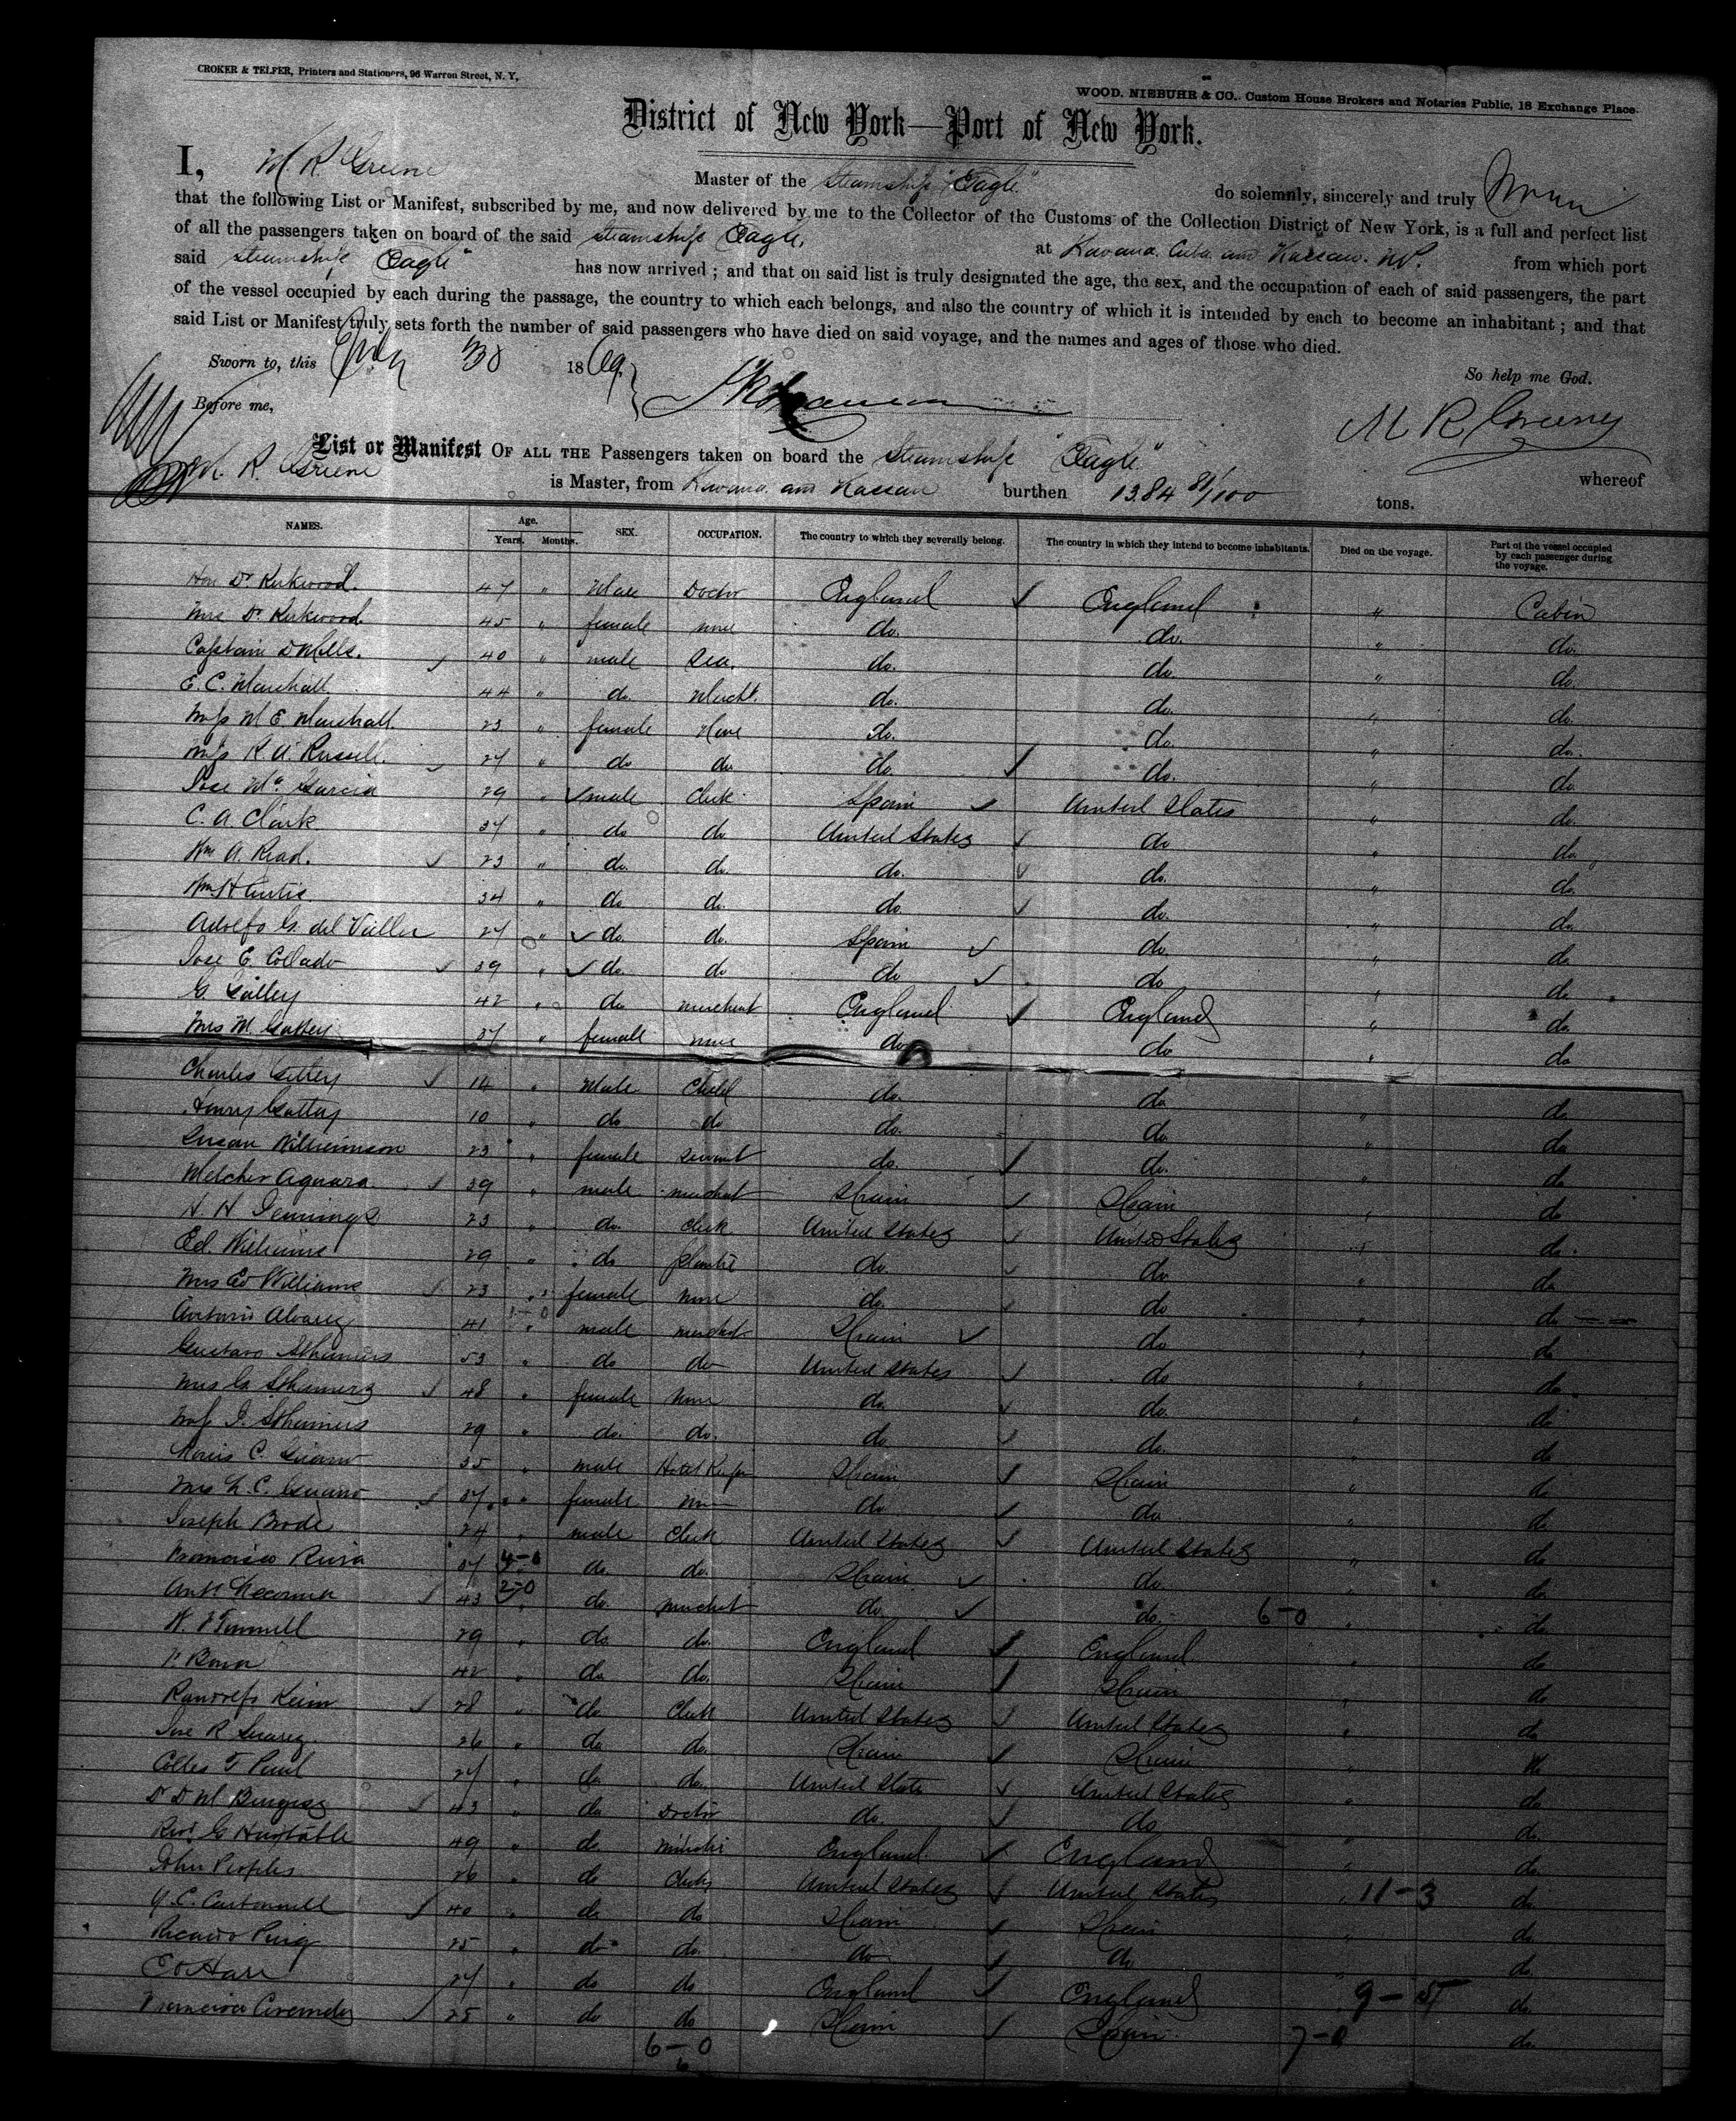 CROKER & TELFER, Printers and Stationers, 96 Warren Street, N. Y.
WOOD, NIEBUHR & CO., Custom House Brokers and Notaries Public, 18 Exchange Place.
District of New York—Port of New York.
I, M R Greene Master of the Steamship "Eagle" do solemnly, sincerely and truly
that the following List or Manifest, subscribed by me, and now delivered by me to the Collector of the Customs of the Collection District of New York, is a full and perfect list
of all the passengers taken on board of the said Steamship Eagle, at Havana. Cuba. and Nassau. NP. from which port
said Steamship "Eagle" has now arrived ; and that on said list is truly designated the age, the sex, and the occupation of each of said passengers, the part
of the vessel occupied by each during the passage, the country to which each belongs, and also the country of which it is intended by each to become an inhabitant ; and that
said List or Manifest truly sets forth the number of said passengers who have died on said voyage, and the names and ages of those who died.
Sworn to, this July 30 1869.
So help me God.
Before me,
M R Greene
List or Manifest OF ALL THE Passengers taken on board the Steamship "Eagle" whereof
M. R. Greene is Master, from Havana. and Nassau burthen 1384 81/100 tons.
NAMES. Age. Years. Months. SEX. OCCUPATION. The country to which they severally belong. The country in which they intend to become inhabitants. Died on the voyage. Part of the vessel occupied by each passenger during the voyage.
Hon Dr Kirkwood. 47 " Male Doctor England England " Cabin
Mrs Dr Kirkwood 45 " female none do. do. " do.
Captain D Mills. 40 " male Sea. do. do. " do.
E. C. Marshall 44 " do. Mercht. do. do. " do.
Miss M E Marshall. 23 " female None do. do. " do.
Miss R. A. Russell. 27 " do do. do. do. " do.
Jose Ma Garcia 29 " male Clerk Spain United States " do.
C. A. Clark 37 " do do United States do " do.
Wm A. Read. 23 " do. do. do. do. " do.
Wm H Curtis 34 " do. do. do. do. " do.
Adolfo G. del Valle 27 " do. do. Spain do. " do
Jose E. Collado 39 " do. do do do " do.
G. Gattey 42 " do. merchant England England " do
Mrs M. Gattey 37 " female none do. do " do
Charles Gattey 14 " Male Child do. do. " do.
Henry Gattey 10 " do do do. do. " do
Susan Williamson 23 " female servant do. do. " do
Melcher Aguara 39 " male merchant Spain Spain " do
H. H Jennings 23 " do. Clerk United States United States " do.
Ed. Williams 29 " do do. do " do
Mrs Ed Williams 23 " female none do. do " do
Antonio Alvarez 41 " male merchant Spain do " do
Gustavo 53 " do do United States do " do.
Mrs G. 48 " female None do. do. " do
Miss J. 29 " do. do. do do. " do
C. 35 " male Hotel Keeper Spain Spain " do
Mrs L. C. 37 " female do do " do
Joseph 24 " male Clerk United States United States " do
Francisco 37 " do do. Spain do. " do
4-6
2-0
43 " do. merchet do do. 6-0 " do
W. 29 " do do. England England " do
P. 42 " do do. Spain Spain " do
Randolfo Keim 28 " do Clerk United States United States " do
Jose R Suarez. 26 " do do. Spain Spain "
Colles F Paul 27 " do do. United State United States " do
Dr D M Burgess 43 " do Doctor do. do " do.
Revd G Huxtable 49 " do. England England " do.
John Peoples 26 " do Clerk United States United States " 11-3 do.
Y. C. Carbonnell 40 " do do Spain Spain do.
Ricardo Puig 25 " do do. do do do.
27 " do do England England 9-5 do.
Francisco 25 " do do Spain Spain 7-0 do.
6-0
6